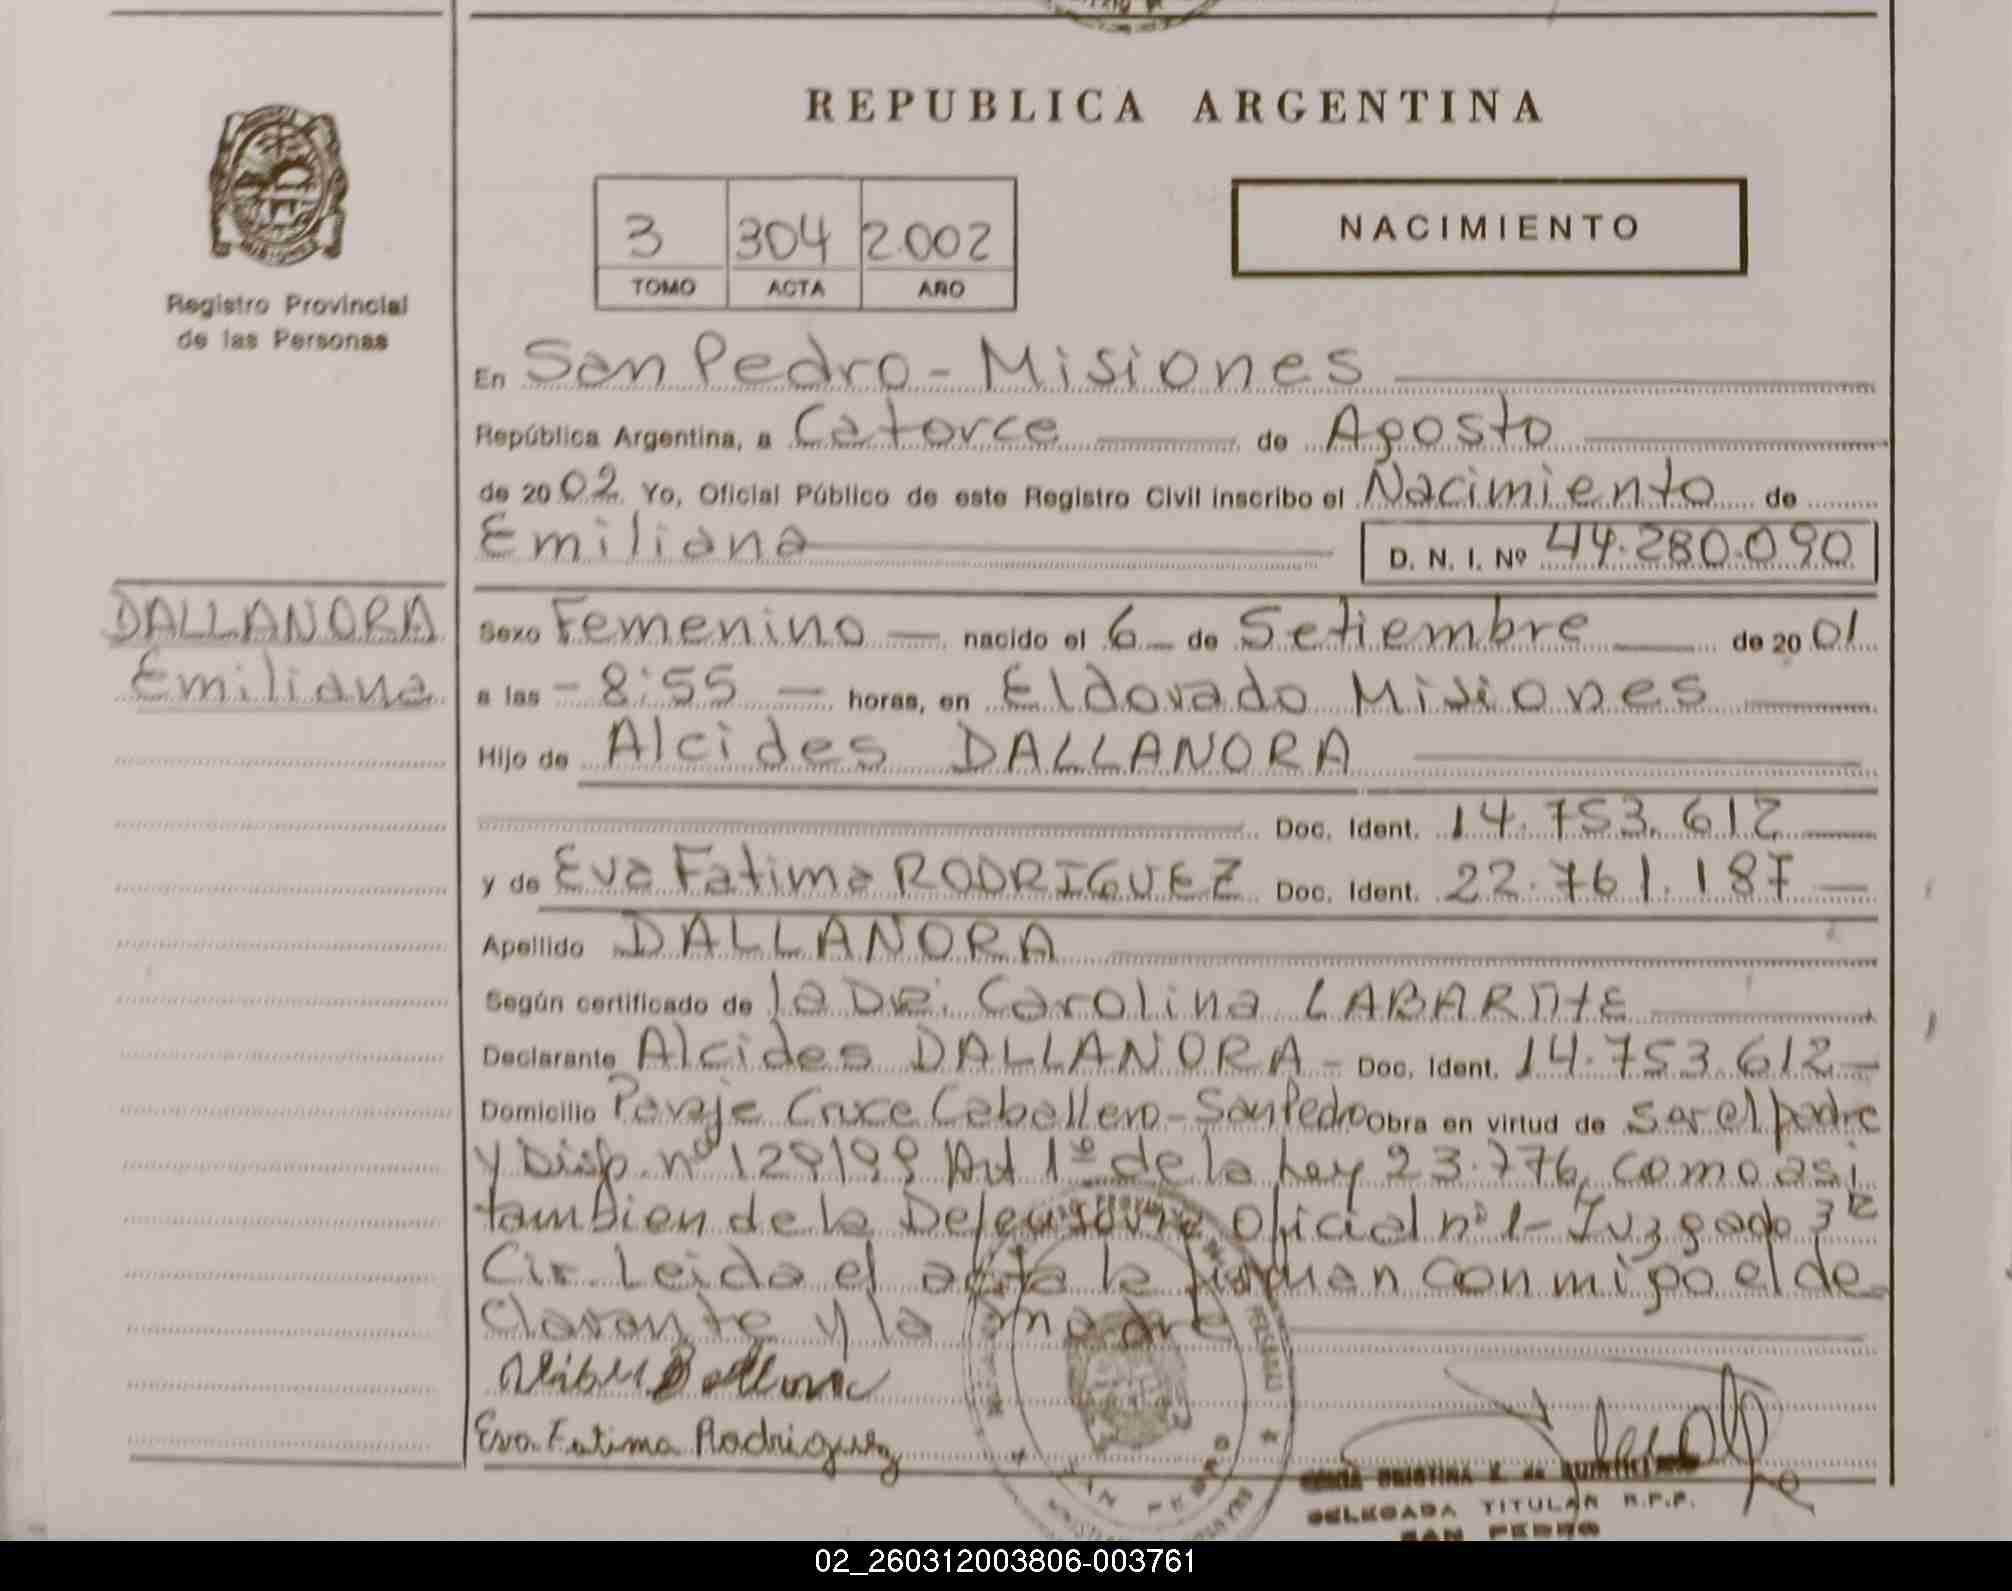 REPUBLICA ARGENTINA
NACIMIENTO
3 304 2.002
TOMO ACTA AÑO
MISIONES
Registro Provincial
de las Personas
En San Pedro - Misiones
República Argentina, a Catorce de Agosto
de 2002 Yo, Oficial Público de este Registro Civil inscribo el Nacimiento de
Emiliana D. N. I. Nº 44.280.090
DALLANORA
Emiliana
Sexo Femenino — nacido el 6 — de Setiembre de 2001
a las - 8:55 — horas, en Eldorado Misiones
Hijo de Alcides DALLANORA
Doc. Ident. 14.753.612
y de Eva Fatima RODRIGUEZ Doc. Ident. 22.761.187 —
Apellido DALLANORA
Según certificado de la Dr. Carolina
Declarante Alcides DALLANORA - Doc. Ident. 14.753.612 —
Domicilio Paraje Cruce Caballero - San Pedro Obra en virtud de ser el padre
y Disp. nº Art 1º de la Ley 23.776, como asi
tambien de la Defensoria Oficial nº 1 - Juzgado 3
Cir. Leida el acta la firman conmigo el de
clarante y la madre
Eva Fatima Rodriguez
CRISTINA
DELEGADA TITULAR R.P.P.
SAN PEDRO
02_260312003806-003761